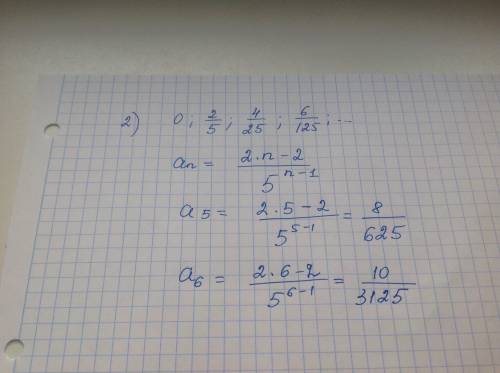 2) 0; 2/5; 4/25; 6/125; ...
aₙ = (2·n-2)/5ⁿ⁻¹
a₅ = (2·5-2)/5⁵⁻¹ = 8/625
a₆ = (2·6-2)/5⁶⁻¹ = 10/3125